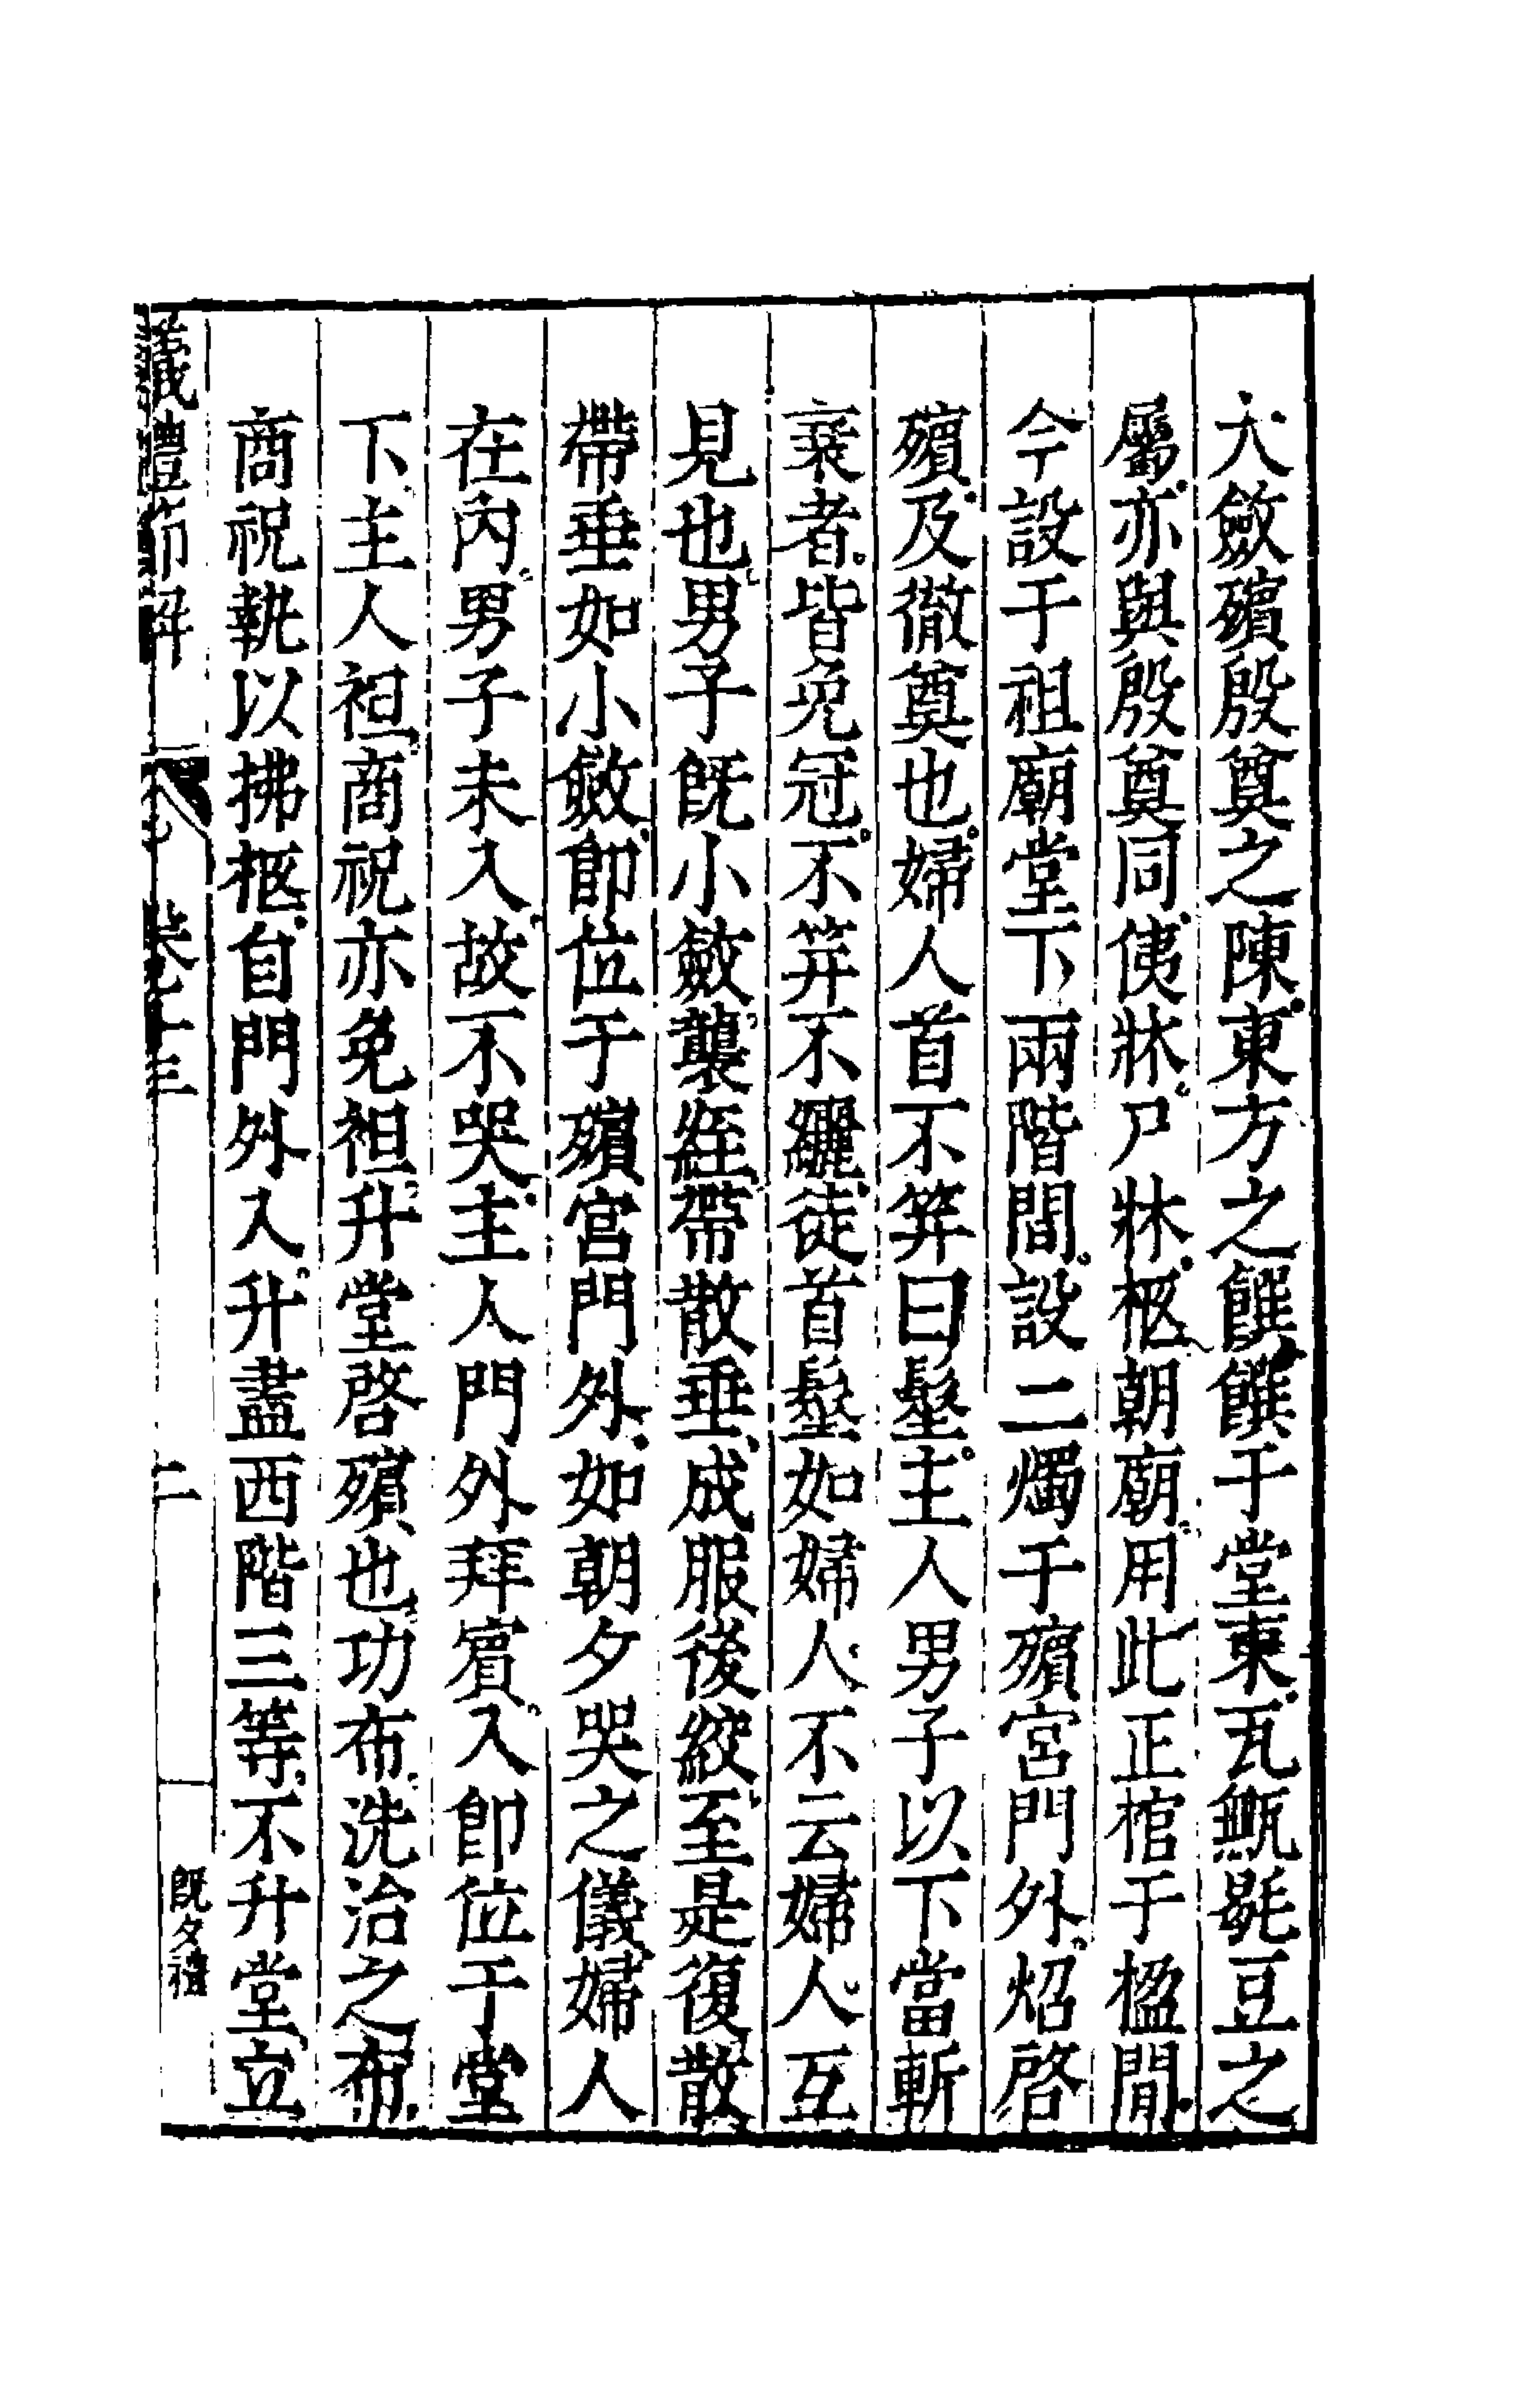 大斂殯殷奠之陳東方之饌饌于堂東瓦甒毼豆之
屬亦與殷奠同侇牀尸牀柩朝廟用此正棺于楹閒
今設于祖廟堂下兩階間設二燭于殯宮門外炤啓
殯及徹奠也婦人首不筓曰髽主人男子以下當斬
衰者皆免冠不筓不纚徒首髽如婦人不云婦人互
見也男子旣小斂襲絰帶散垂成服後絞至是復散
帶垂如小斂卽位于殯宮門外如朝夕哭之儀婦人
在內男子未入故不哭主人門外拜賓入卽位于堂
下主人袒商祝亦免袒升堂啓殯也功布洗治之布
商祝執以拂柩自門外入升盡西階三等不升堂立
儀禮節解
卷十三
二
旣夕禮